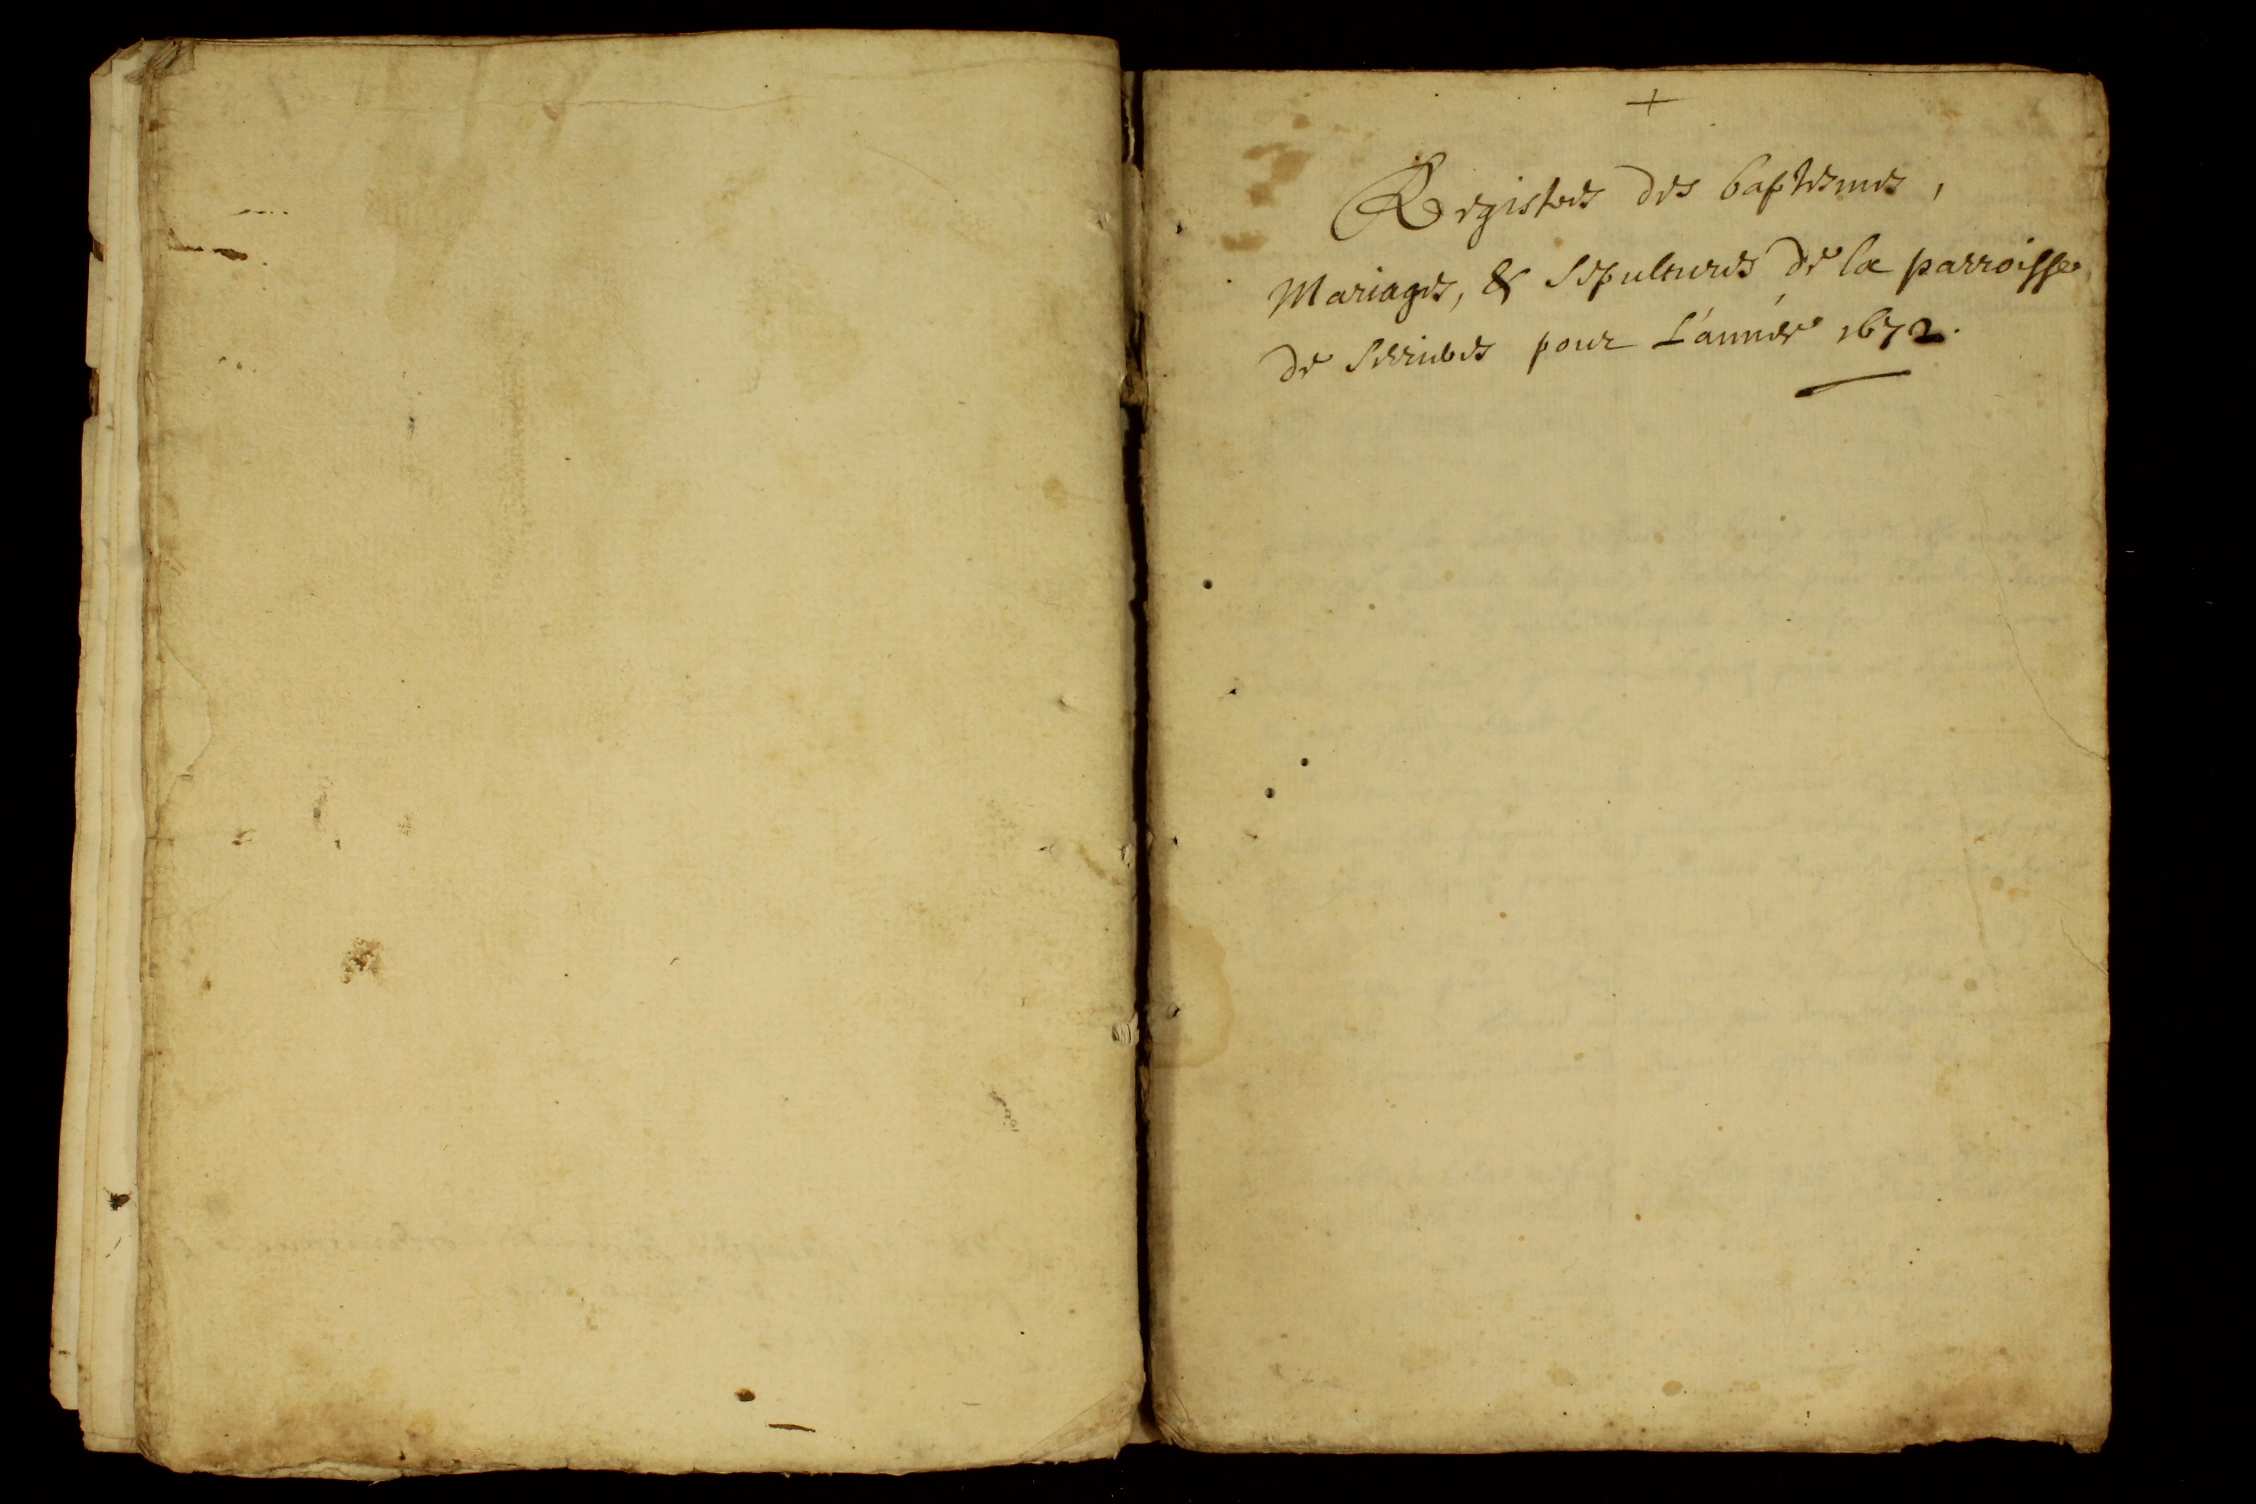 +
Registres des baptesmes,
Mariages, & Sepultures de la parroisse
de pour L'année 1672.